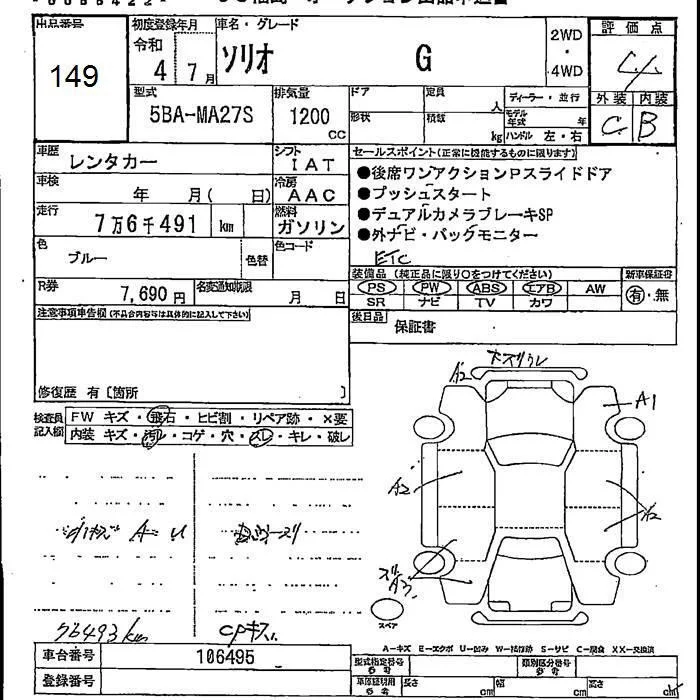 出品番号
149
初度登録年月
令和
4 7月
車名・グレード
ソリオ G
2WD
・
4WD
評価点
外装 内装
C B
型式
5BA-MA27S
排気量
1200
CC
ドア
定員
人
形状
積載
kg
ディーラー・並行
モデル年式 年
ハンドル 左・右
車歴
レンタカー
シフト
IAT
車検
年 月( 日)
冷房
AAC
走行
7万6千491 km
燃料
ガソリン
色
ブルー
色替
色コード
R券
7,690円
名変通知期限
月 日
セールスポイント(正常に機能するものに限ります)
●後席ワンアクションPスライドドア
●プッシュスタート
●デュアルカメラブレーキSP
●外ナビ・バックモニター
ETC
装備品(純正品に限り○をつけてください)
新車保証書
PS PW ABS エアB AW
有・無
SR ナビ TV カワ
後日品
保証書
注意事項申告欄(不具合内容等は具体的に記入して下さい)
修復歴 有〔箇所 〕
検査員記入欄
FW キズ・飛石・ヒビ割・リペア跡・×要
内装 キズ・汚レ・コゲ・穴・スレ・キレ・破レ
A2
A1
A2
A2
スペア
76493km
A=キズ E=エクボ U=凹み W=補修跡 S=サビ C=腐食 XX=交換済
車台番号
106495
登録番号
型式指定番号
類別区分番号
長さ cm 幅 cm 高さ cm